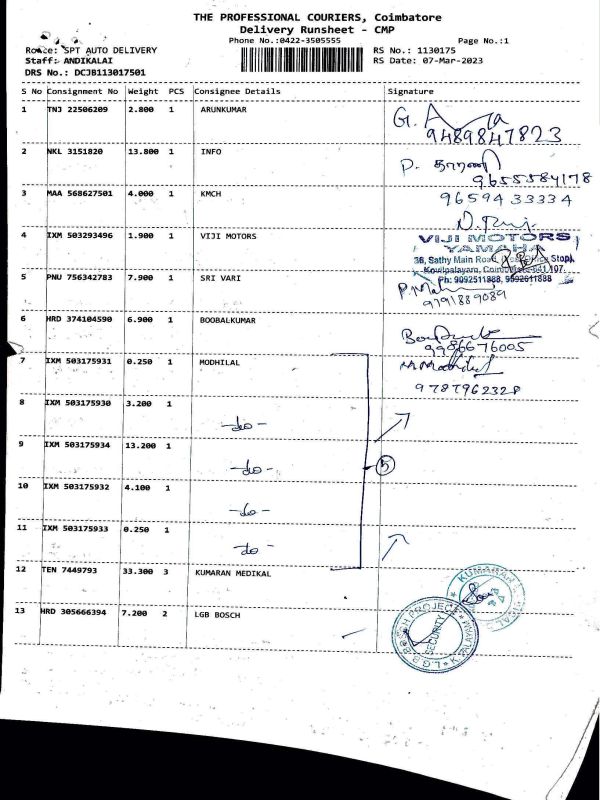 THE PROFESSIONAL COURIERS, Coimbatore
Delivery Runsheet - CMP
Phone No.:0422-3505555 Page No.:1
Route: SPT AUTO DELIVERY RS No.: 1130175
Staff: ANDIKALAI RS Date: 07-Mar-2023
DRS No.: DCJB113017501
S No Consignment No Weight PCS Consignee Details Signature
1 TNJ 22506209 2.800 1 ARUNKUMAR
9489847823
2 NKL 3151820 13.800 1 INFO P. தாரணி
9655584178
3 MAA 568627501 4.000 1 KMCH 9659433334
4 IXM 503293496 1.900 1 VIJI MOTORS VIJI MOTORS
YAMAHA
36, Sathy Main Road, Stop),
Kovilpalayam, 641 107.
5 PNU 756342783 7.900 1 SRI VARI Ph: 9092511888, 9592611888
9191889089
6 HRD 374104590 6.900 1 BOOBALKUMAR
9986676005
7 IXM 503175931 0.250 1 MODHILAL M.Modhilal
9787962328
8 IXM 503175930 3.200 1
-do-
9 IXM 503175934 13.200 1
-do- 5
10 IXM 503175932 4.100 1
-do-
11 IXM 503175933 0.250 1
-do-
12 TEN 7449793 33.300 3 KUMARAN MEDIKAL KUMARAN
13 HRD 305666394 7.200 2 LGB BOSCH L.G.B BOSCH PROJECT
SECURITY